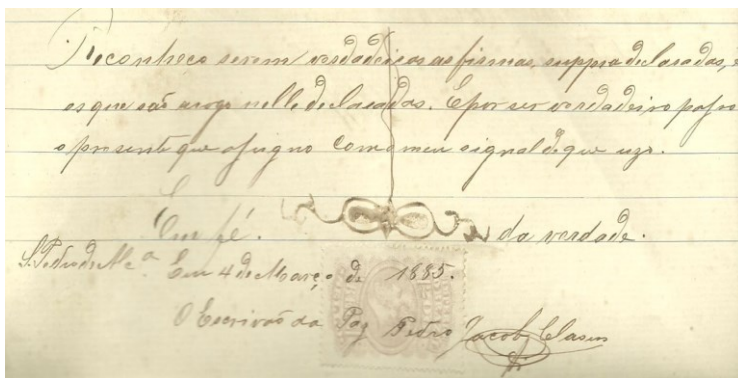 Reconheço serem verdadeiras as firmas suppra declaradas,
os que são arogo nelle declarados. E por ser verdadeiro passo
o presente que assigno com o meu signal de que uzo.
Em fé. da verdade.
S. Pedro de Alc.ª Em 4 de Março de 1885.
O Escrivão da Paz Pedro Jacob